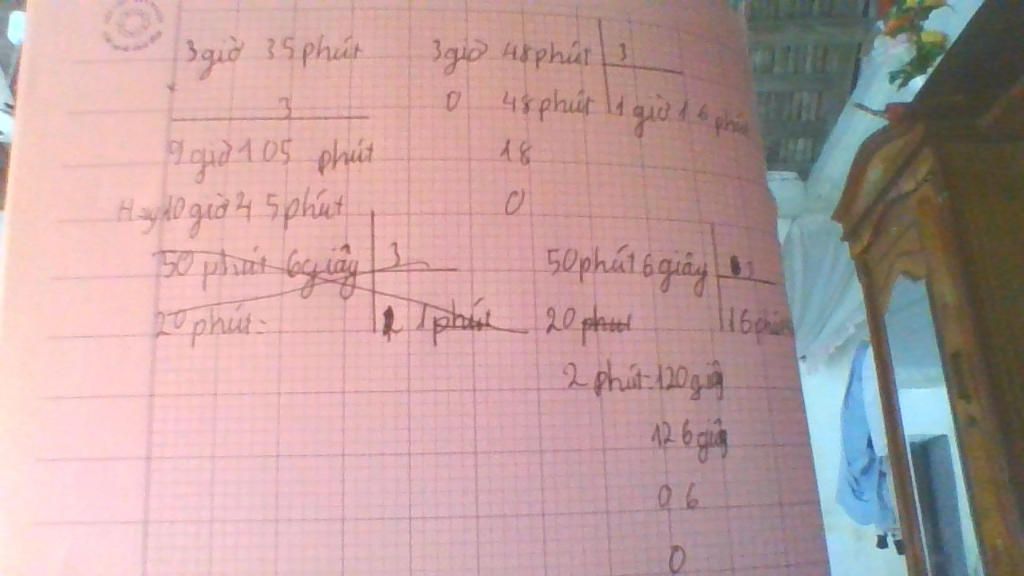 3giờ 35phút
3
9giờ 105 phút
Hay 10giờ 45phút
3giờ 48phút 3
0 48phút 1giờ 16phút
18
0
50 phút 6giây 3
20 phút =
1phút
50phút 6giây 3
20 phút 16phút
2 phút=120giây
126giây
06
0